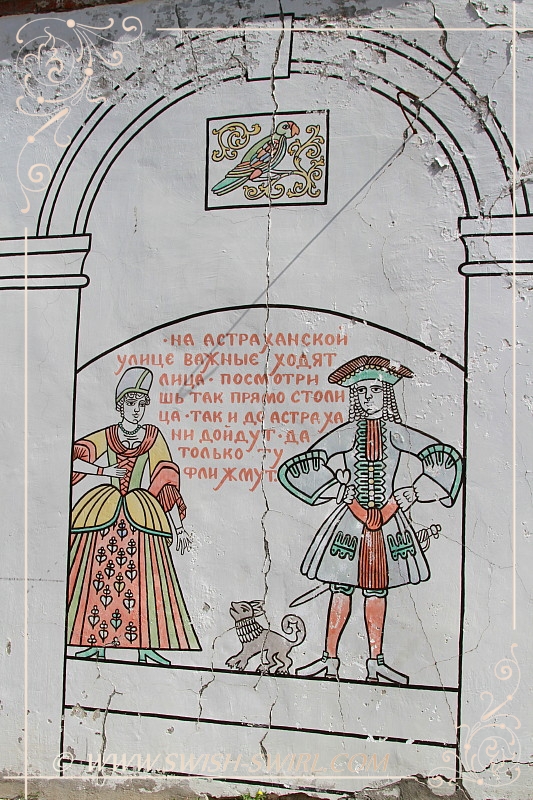 ·НА АСТРАХАНСКОЙ
УЛИЦЕ ВАЖНЫЕ ХОДЯТ
ЛИЦА· ПОСМОТРИ
ШЬ ТАК ПРЯМО СТОЛИ
ЦА·ТАК И ДО АСТРАХА
НИ ДОЙДУТ·ДА
ТОЛЬКО ТУ
ФЛИ ЖМУТ·
© WWW.SWISH-SWIRL.COM